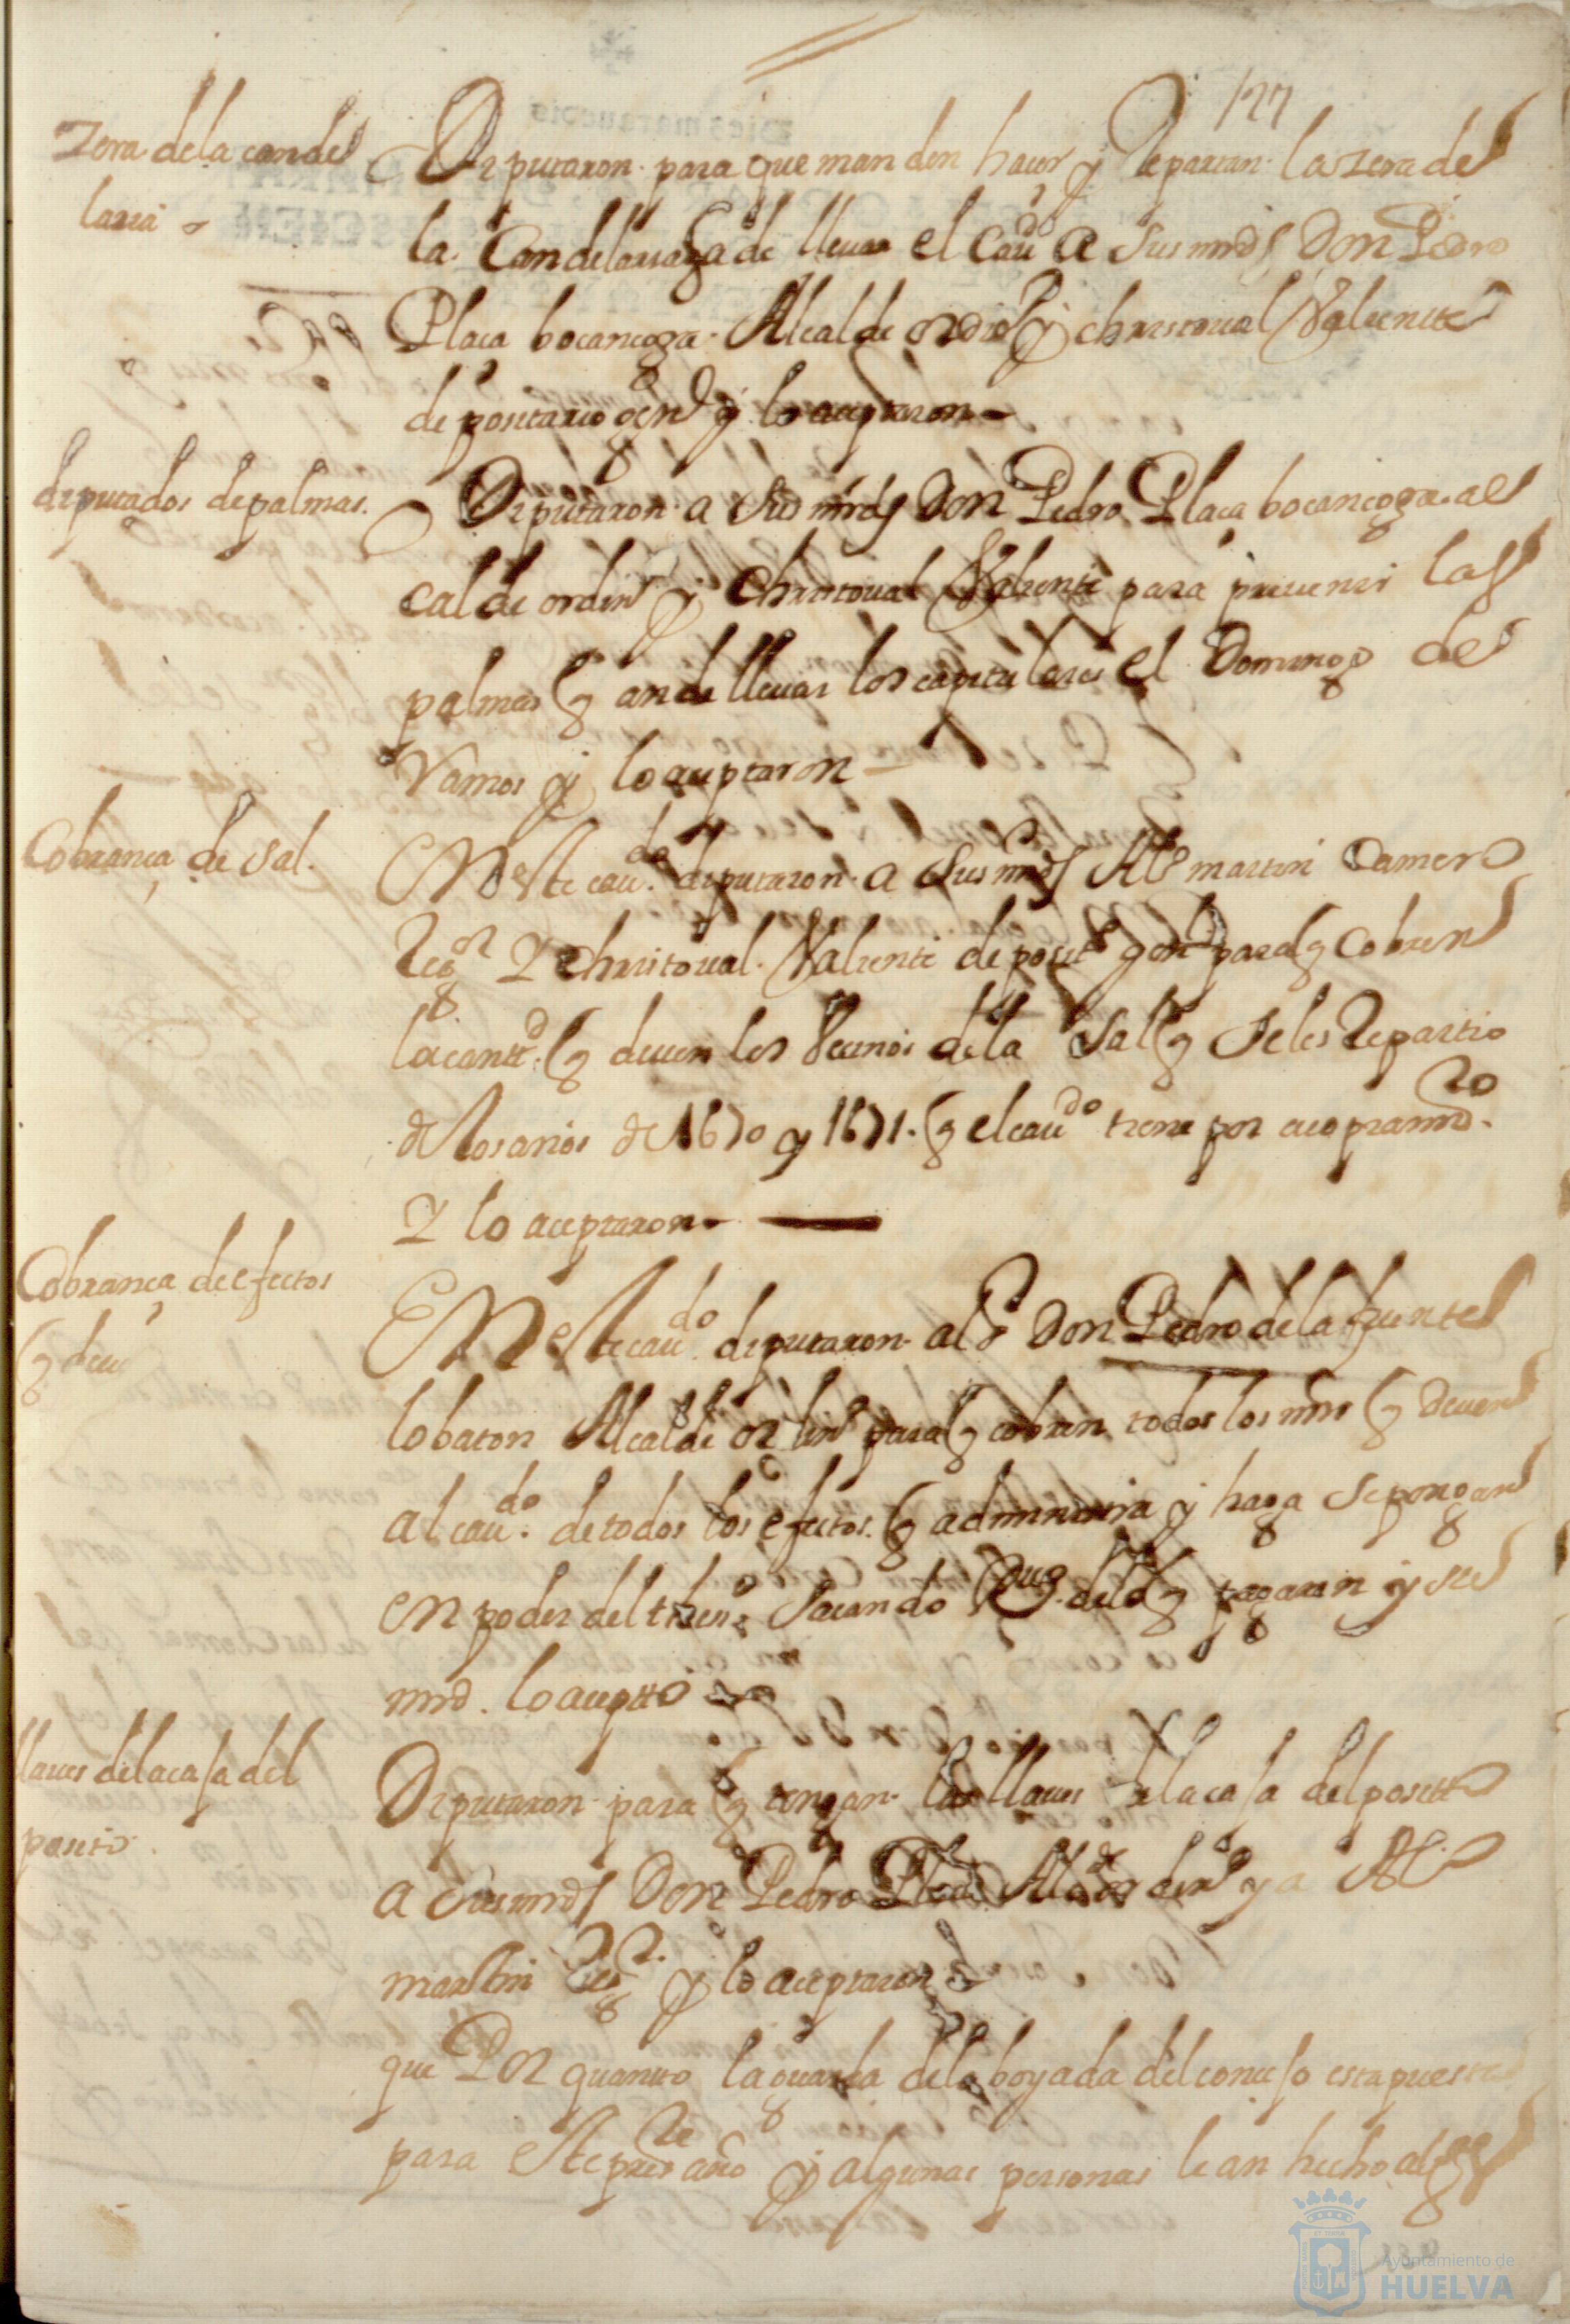 127
Zera de la candel
laria
Diputaron para que manden hacer y Repartan la zera de
la Candelaria q a de lleuar el Caudo a sus mrds Don Pedro
Plaça bocanegra Alcalde ordio y christoual Valiente
depositario genl y lo aceptaron
diputados de palmas.
Diputaron a sus mrds Don Pedro Plaça bocanegra al
calde ordino y Christoual Valiente para preuenir las
palmas q an de lleuar los capitulares el Domingo de
Ramos y lo aceptaron
Cobrança de sal.
En este caudo diputaron a sus mrds Alo martin Camero
Regor Y christoual Valiente deposito genl para q cobren
la cantd q deuen los Vecinos de la Sal q se les Repartio
de los años de 1670 y 1671 q el caudo tiene por acopiamto
Y lo aceptaron
Cobrança de efectos
q deue
En este caudo diputaron al Sr Don Pedro de la fuente
lobaton Alcalde ordino para q cobren todos los mrs q deuen
al caudo de todos los efectos q administra y haga se pongan
en poder del sacando de lo q pagaren y su
mrd lo aceptto
llaues de la casa del
posito
Diputaron para q tengan las llaues de la casa del positto
a sus mrds Don Pedro Plaça Alcde ordino y a Alo
martin Regor y lo aceptaron
que Por quanto la guarda de la boyada del concejo esta puesta
para este preste año y algunas personas le an hecho al
Ayuntamiento de
HUELVA